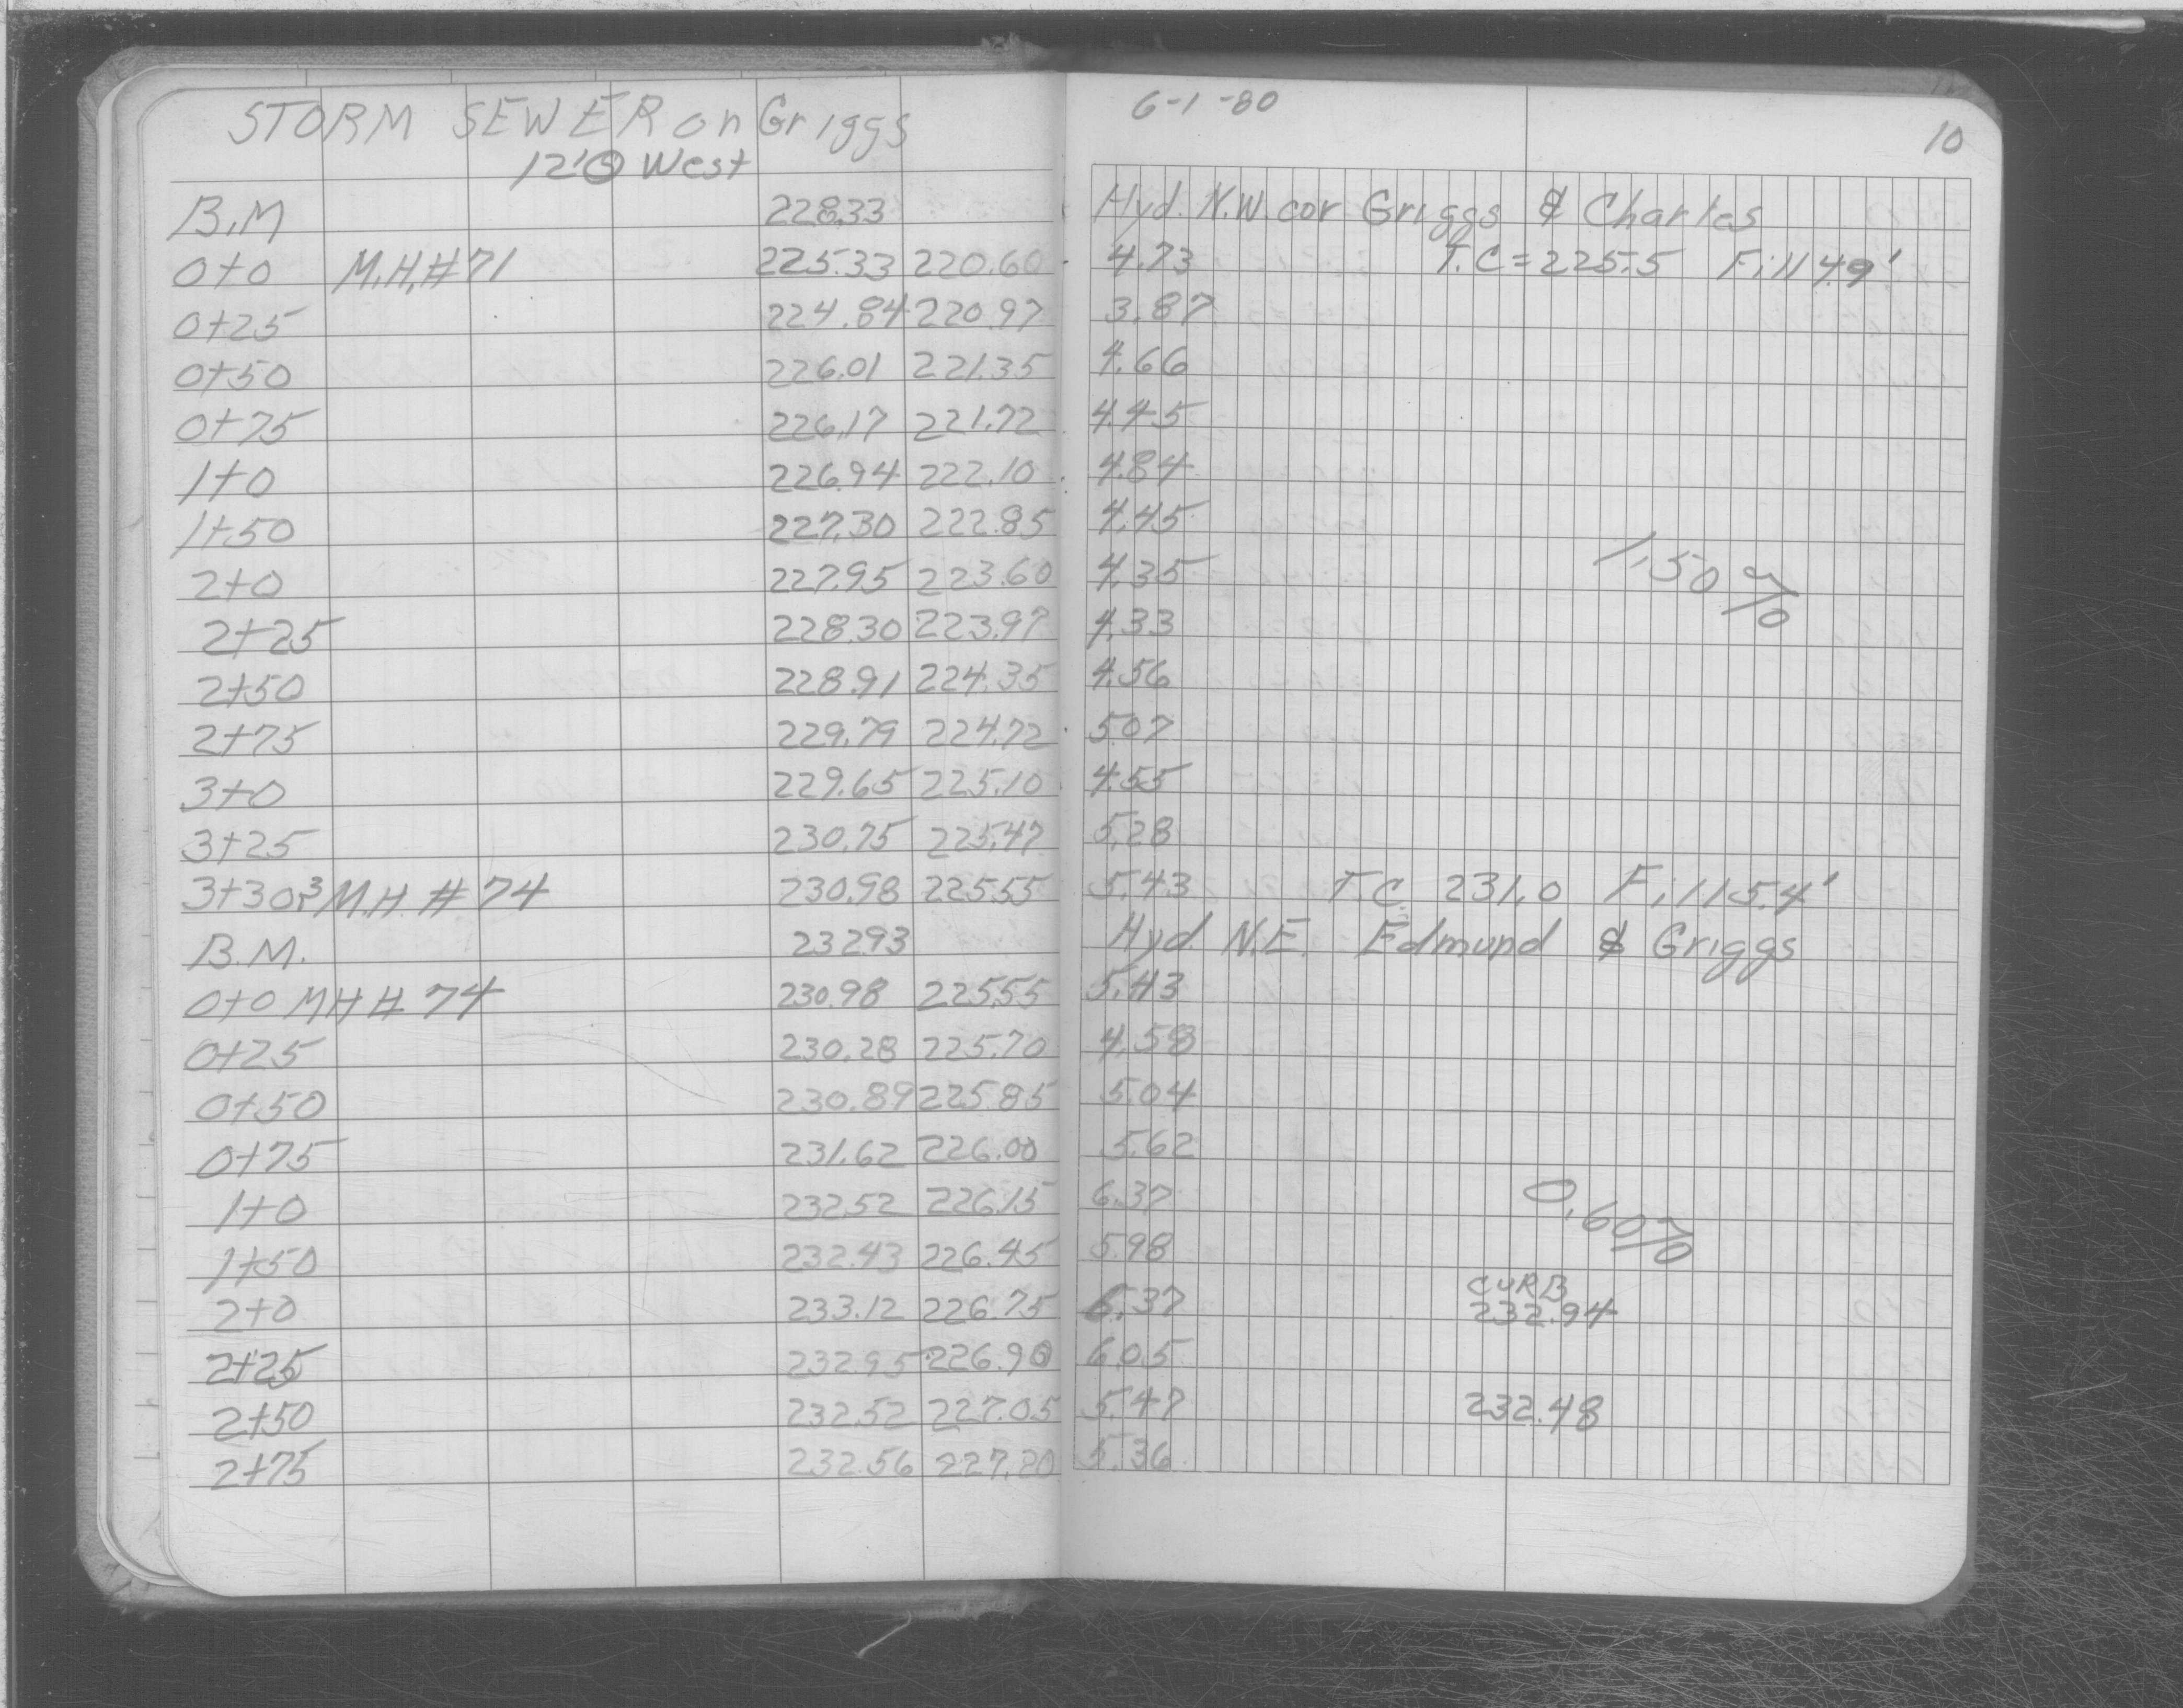 STORM SEWER on Griggs 6-1-80
12'@ West 10
B.M 228.33 Hyd. N.W. cor Griggs & Charles
0+0 M.H.#71 225.33 220.60 4.73 T.C=225.5 Fill 4.9'
0+25 224.84 220.97 3.87
0+50 226.01 221.35 4.66
0+75 226.17 221.72 4.45
1+0 226.94 222.10 4.84
1+50 227.30 222.85 4.45
2+0 227.95 223.60 4.35
2+25 228.30 223.97 4.33
1.50%
2+50 228.91 224.35 4.56
2+75 229.79 224.72 5.07
3+0 229.65 225.10 4.55
3+25 230.75 225.47 5.28
3+30 M.H. #74 230.98 225.55 5.43 T.C. 231.0 Fill 5.4'
B.M. 232.93 Hyd. N.E. Edmund & Griggs
0+0 MH # 74 230.98 225.55 5.43
0+25 230.28 225.70 4.58
0+50 230.89 225.85 5.04
0+75 231.62 226.00 5.62
1+0 232.52 226.15 6.37
0.60%
1+50 232.43 226.45 5.98
CURB
2+0 233.12 226.75 6.37 232.94
2+25 232.95 226.90 6.05
2+50 232.52 227.05 5.47 232.48
2+75 232.56 227.20 5.36